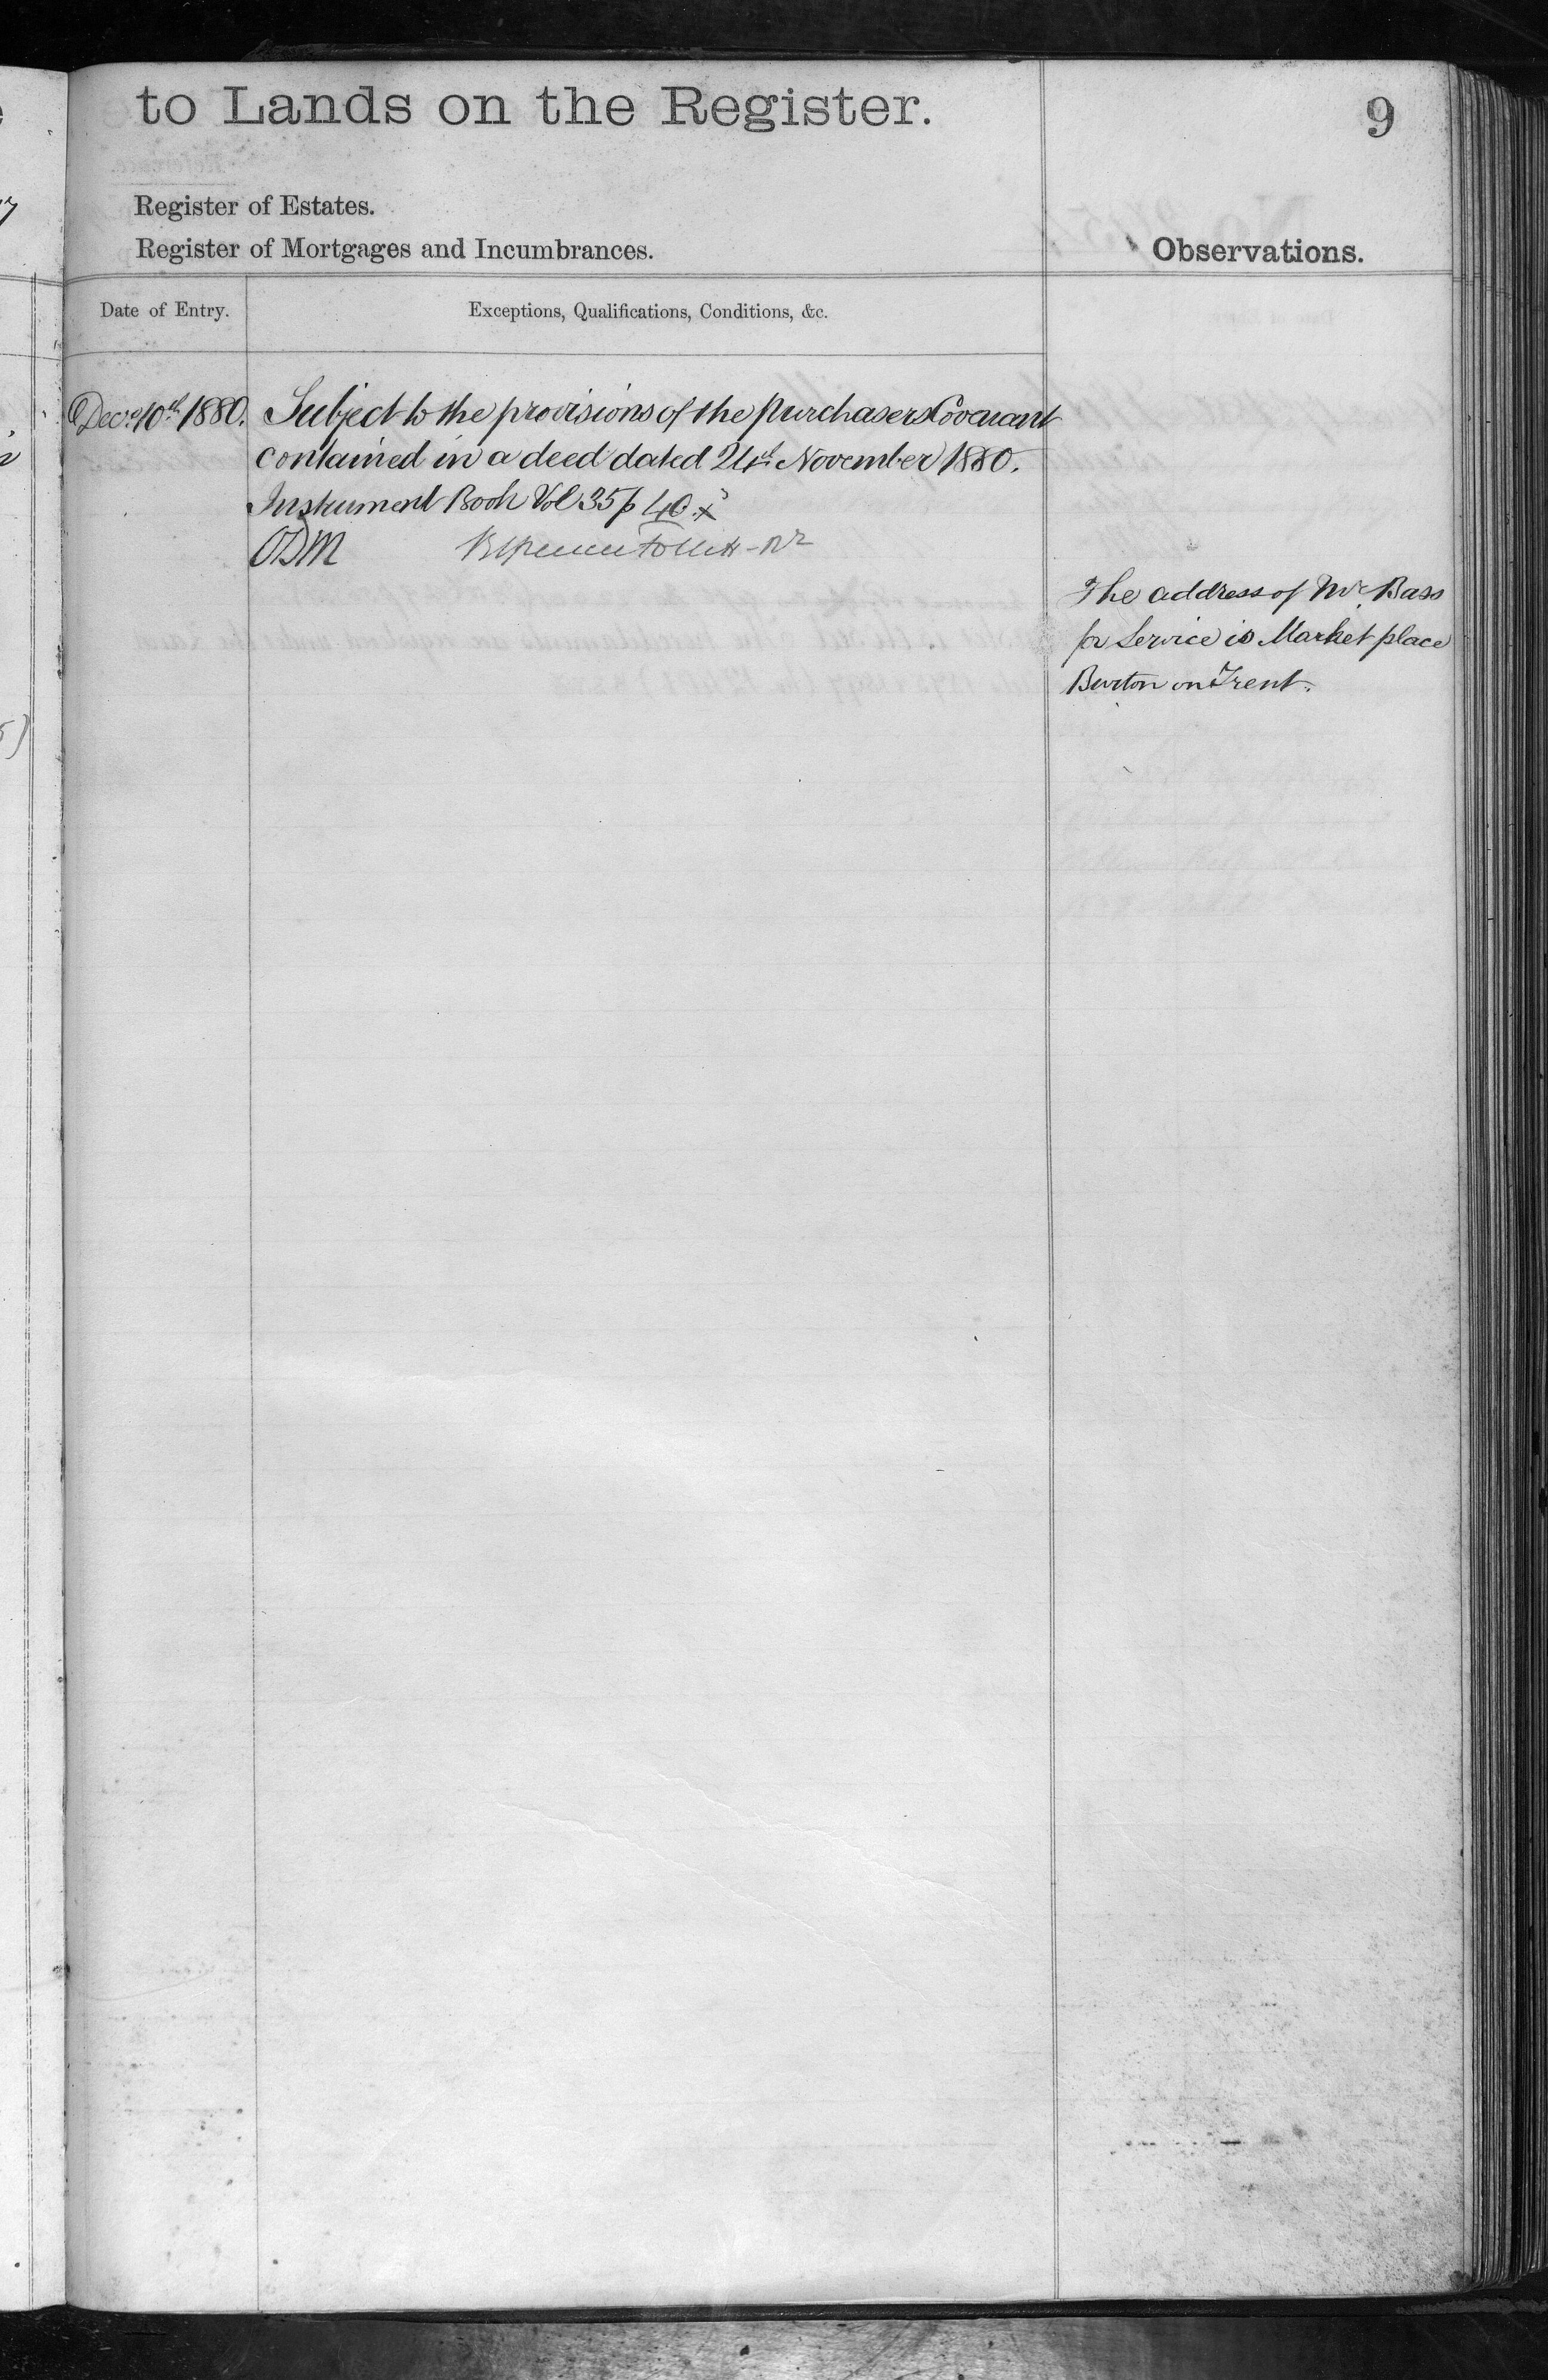 to Lands on the Register.
9
Register of Estates.
Register of Mortgages and Incumbrances.
Observations.
Date of Entry.
Exceptions, Qualifications, Conditions, &c.
Decr 10th 1880.
Subject to the provisions of the purchasers Covenant
contained in a deed dated 24th November 1880.
Instrument Book Vol 35 p 40.
The address of Mr Bass
for Service is Market place
Burton on Trent.